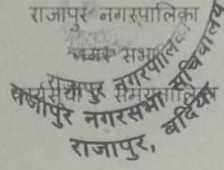 राजापुर नगरपालिका
नगर सभा
राजापुर नगरपालिका
राजापुर नगरसभा सचिवालय
राजापुर, बर्दिया